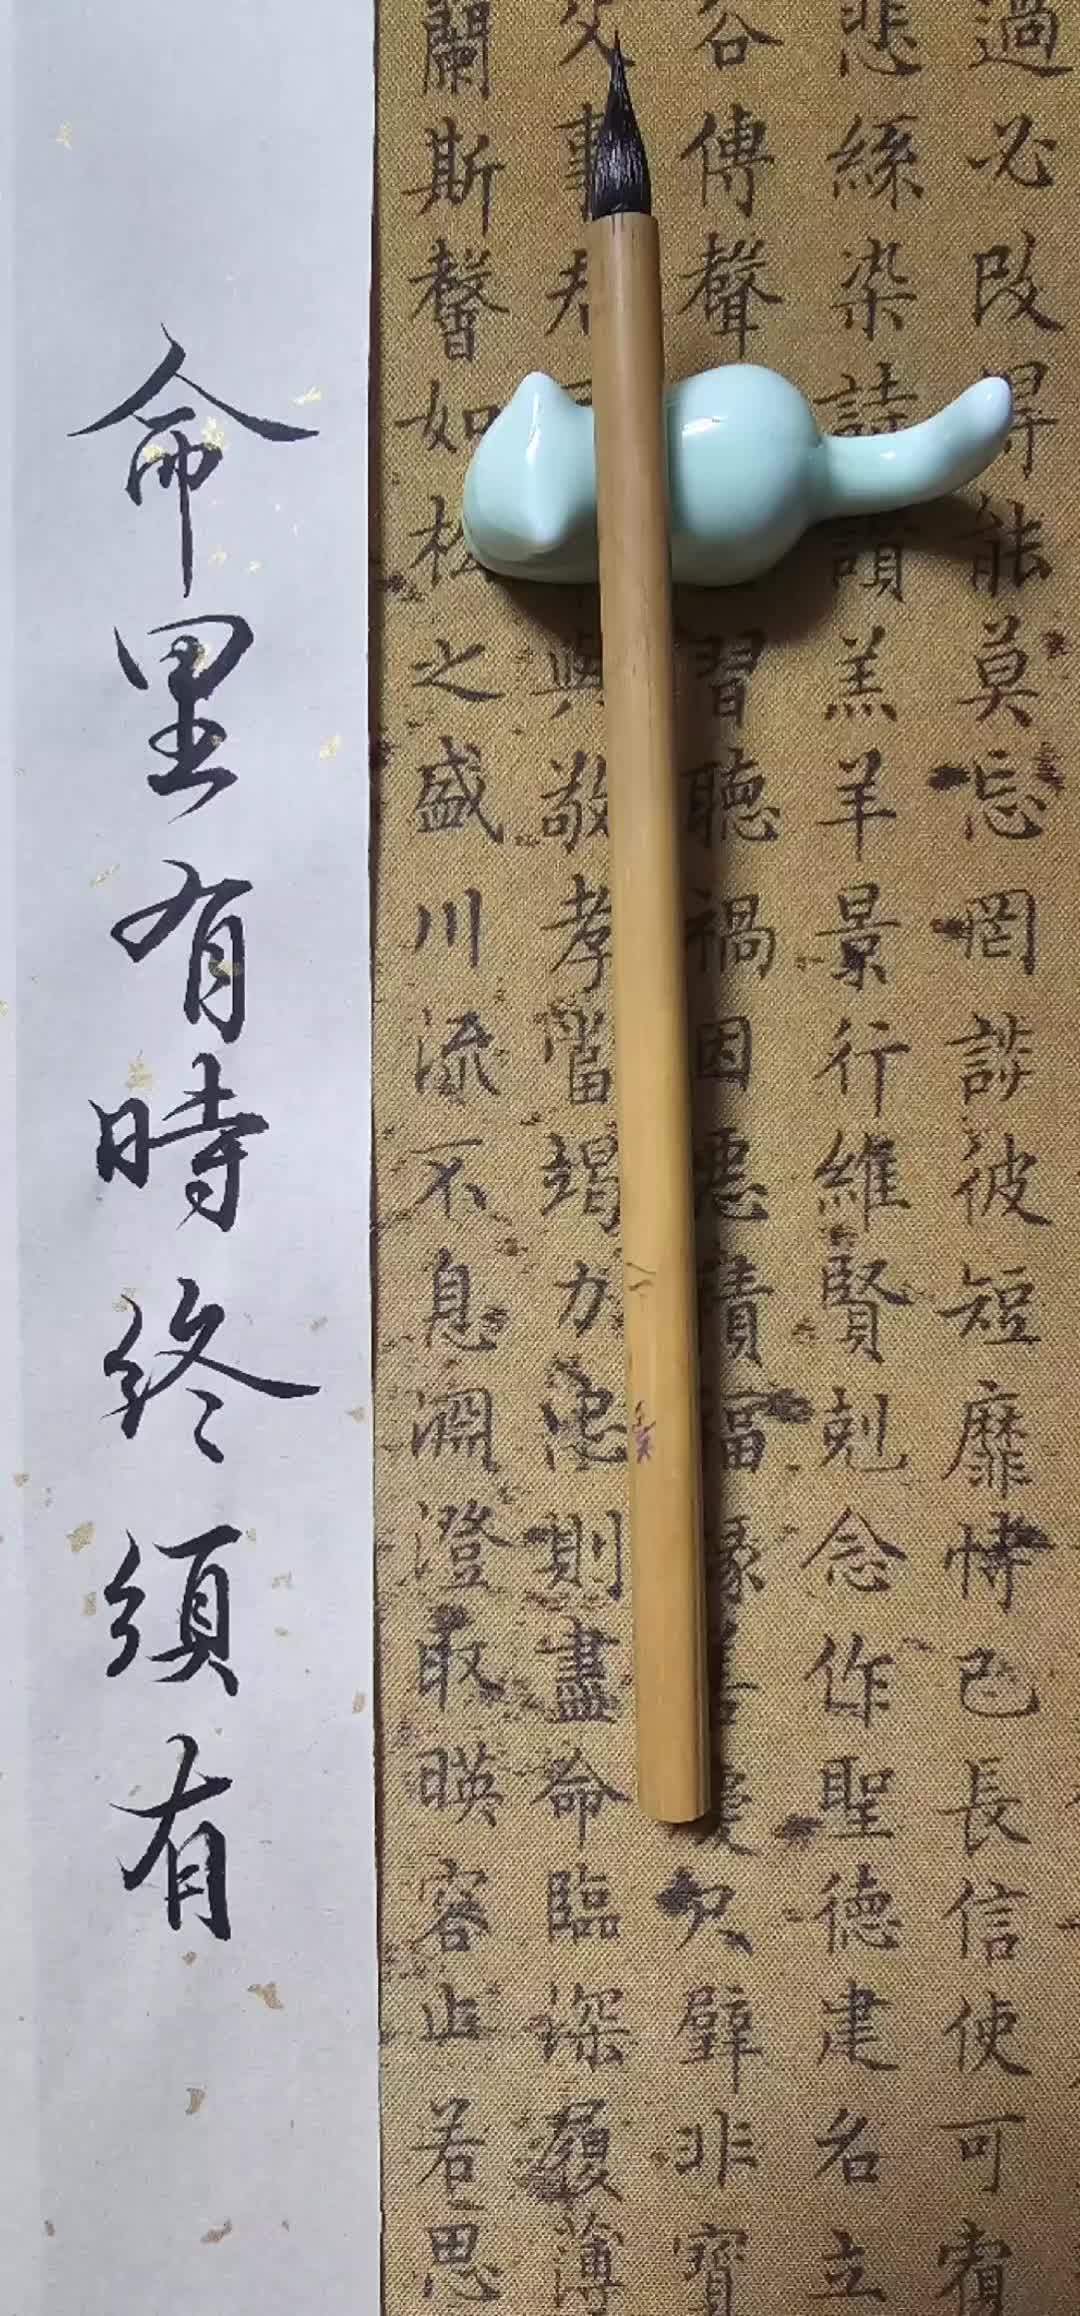 過必改得能莫忘罔談彼短靡恃己長信使可覆
悲絲染詩讚羔羊景行維賢剋念作聖德建名立
谷傳聲習聽禍因惡積福緣慶尺璧非寶
父事君與敬孝當竭力忠則盡命臨深履薄
蘭斯馨如松之盛川流不息淵澄取暎容止若思
命里有時終須有